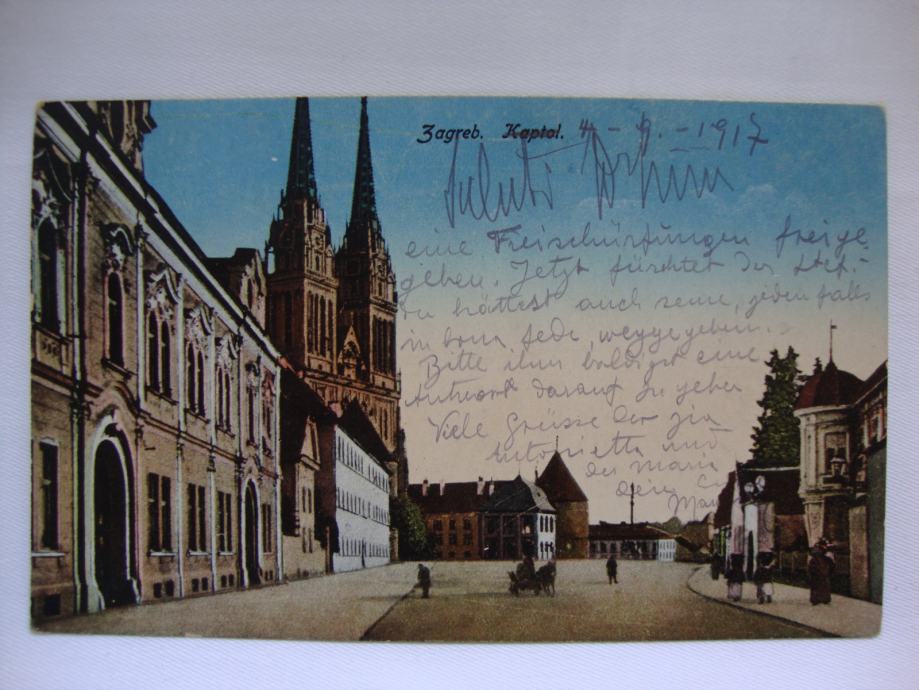 Zagreb. Kaptol. 4 - 9. - 1917
Saluti
eine Freischürfungen freige-
geben. Jetzt fürchtet der Stef.
du hättest auch seine, jedenfalls
in bona fede, weggegeben.
Bitte ihm baldigst eine
Antwort darauf zu geben
Viele Grüsse der zia
Antonietta und
der Maria
dein